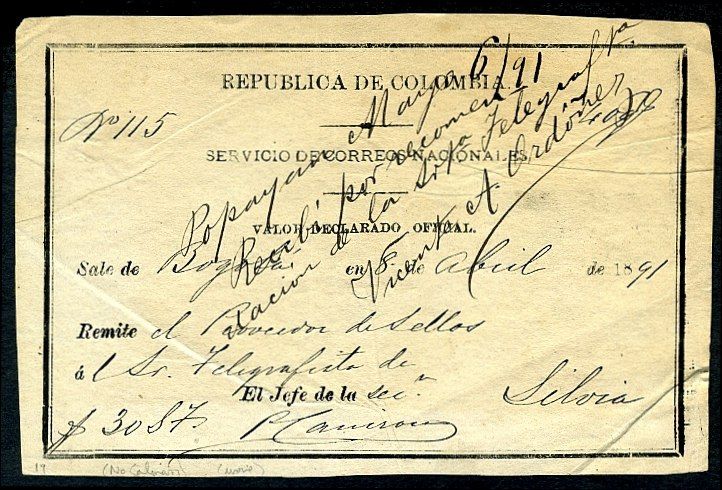 REPUBLICA DE COLOMBIA.
No 115
SERVICIO DE CORREOS NACIONALES
VALOR DECLARADO OFICIAL.
Sale de Bogotá en 8 de Abril de 1891
Remite el Proveedor de Sellos
á l Sr. Telegrafista de
Silvia
El Jefe de la secn
$ 30 87
Popayan Mayo 6/91
Recibí por recomen
dacion de la Srta Telegrafta
Vicente A. Ordóñez